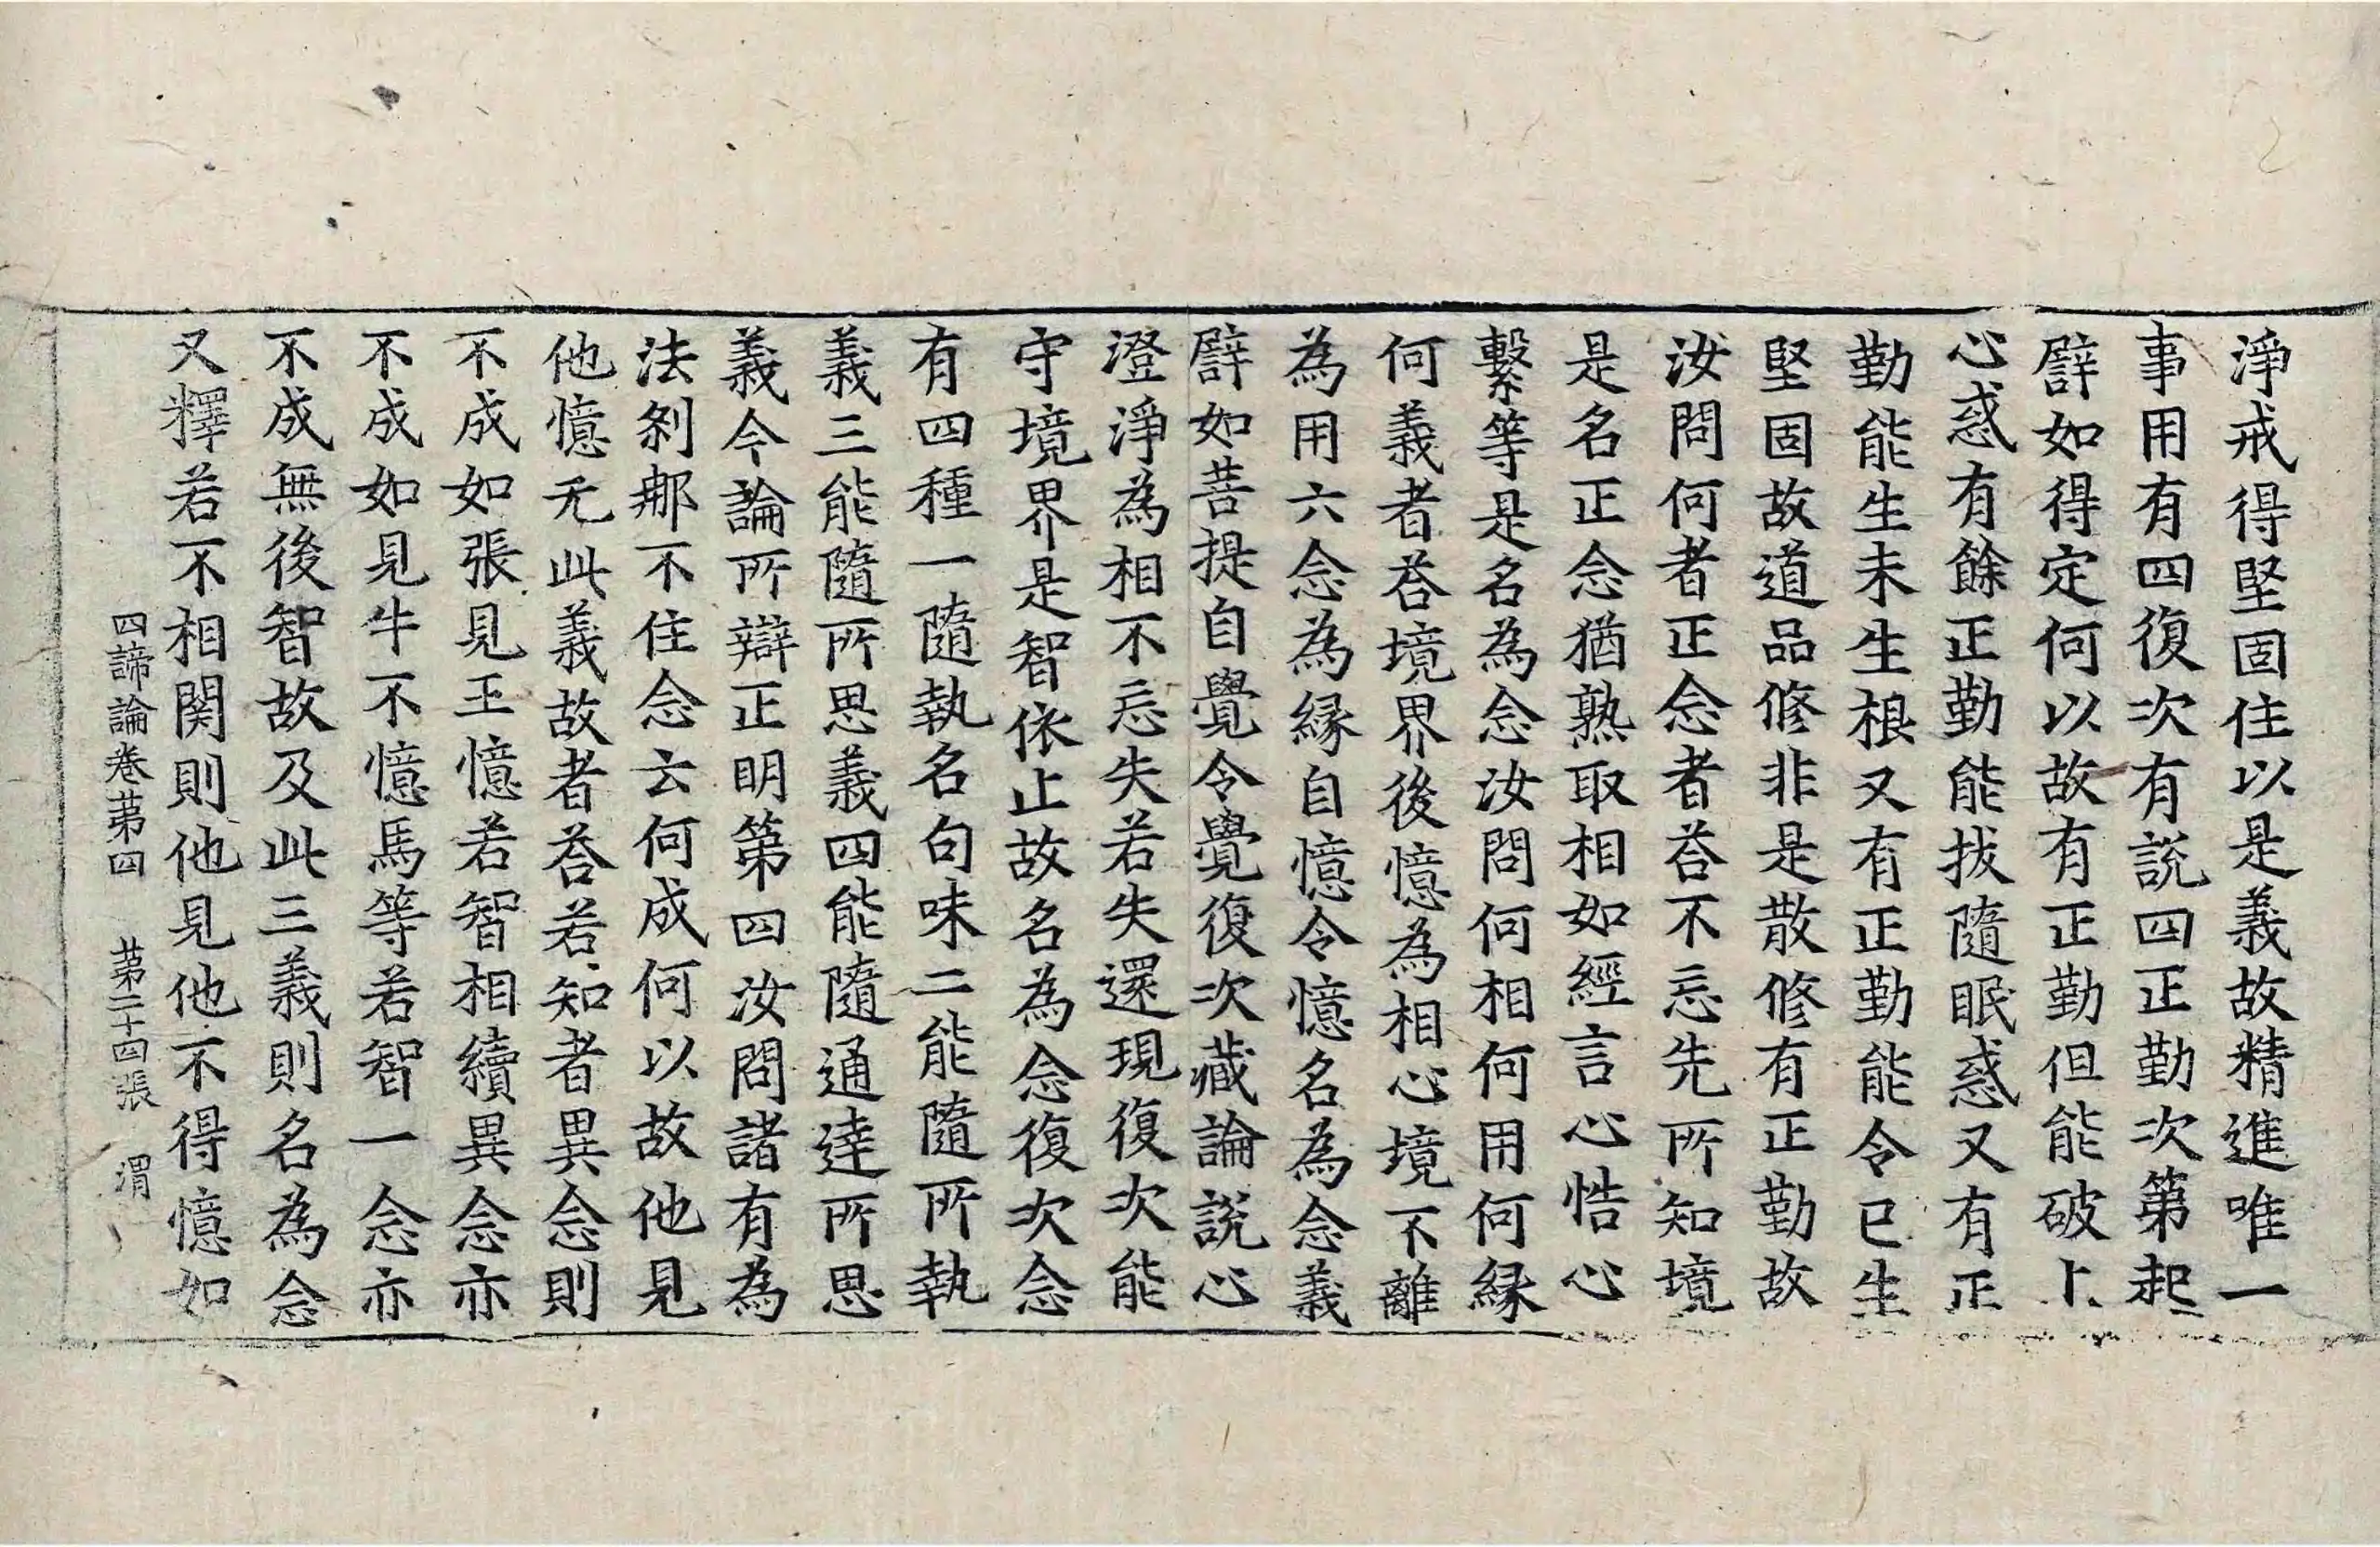 淨戒得堅固住以是義故精進唯一
事用有四復次有説四正勤次第起
譬如得定何以故有正勤但能破上
心惑有餘正勤能拔隨眠惑又有正
勤能生未生根又有正勤能令已生
堅固故道品修非是散修有正勤故
汝問何者正念者荅不忘先所知境
是名正念猶熟取相如經言心悎心
繫等是名為念汝問何相何用何緣
何義者荅境界後憶為相心境不離
為用六念為緣自憶令憶名為念義
譬如菩提自覺令覺復次藏論説心
澄淨為相不忘失若失還現復次能
守境界是智依止故名為念復次念
有四種一隨執名句味二能隨所執
義三能隨所思義四能隨通達所思
義今論所辯正明第四汝問諸有為
法剎那不住念云何成何以故他見
他憶无此義故者荅若知者異念則
不成如張見王憶若智相續異念亦
不成如見牛不憶馬等若智一念亦
不成無後智故及此三義則名為念
又釋若不相関則他見他不得憶如
四諦論卷苐四　苐二十四張　渭